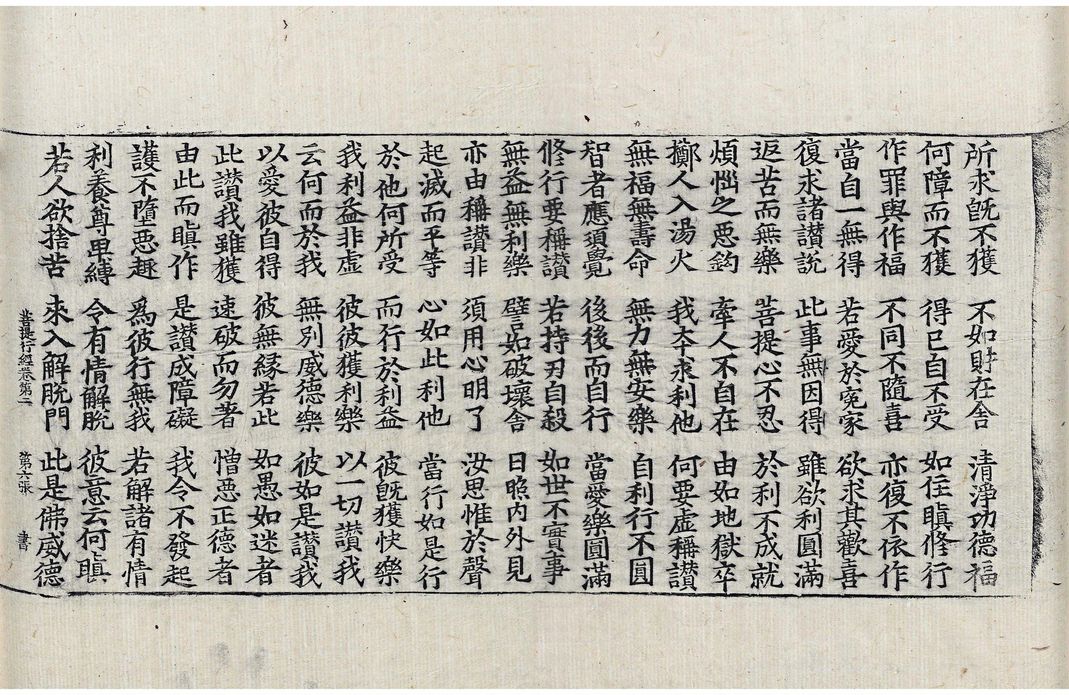 所求旣不獲　不如財在舍　清淨功德福
何障而不獲　得已自不受　如任瞋修行
作罪與作福　不同不隨喜　亦復不依作
當自一無得　若愛於冤家　欲求其歡喜
復求諸讃說　此事無因得　雖欲利圓滿
返苦而無樂　菩提心不忍　於利不成就
煩惱之惡鈎　牽人不自在　由如地獄卒
擲人入湯火　我本求利他　何要虛稱讃
無福無壽命　無力無安樂　自利行不圓
智者應須覺　後後而自行　當愛樂圓滿
修行要稱讃　若持刃自殺　如世不實事
無益無利樂　譬如破壞舍　日照內外見
亦由稱讃非　須用心明了　汝思惟於聲
起滅而平等　心如此利他　當行如是行
於他何所受　而行於利益　彼旣獲快樂
我利益非虛　彼彼獲利樂　以一切讃我
云何而於我　無別威德樂　彼如是讃我
以愛彼自得　彼無緣若此　如愚如迷者
此讃我雖獲　速破而勿著　憎惡正德者
由此而瞋作　是讃成障礙　我令不發起
護不墮惡趣　爲彼行無我　若解諸有情
利養尊卑縛　令有情解脫　彼意云何瞋
若人欲捨苦　來入解脫門　此是佛威德
菩提行經卷第二　第六張　書